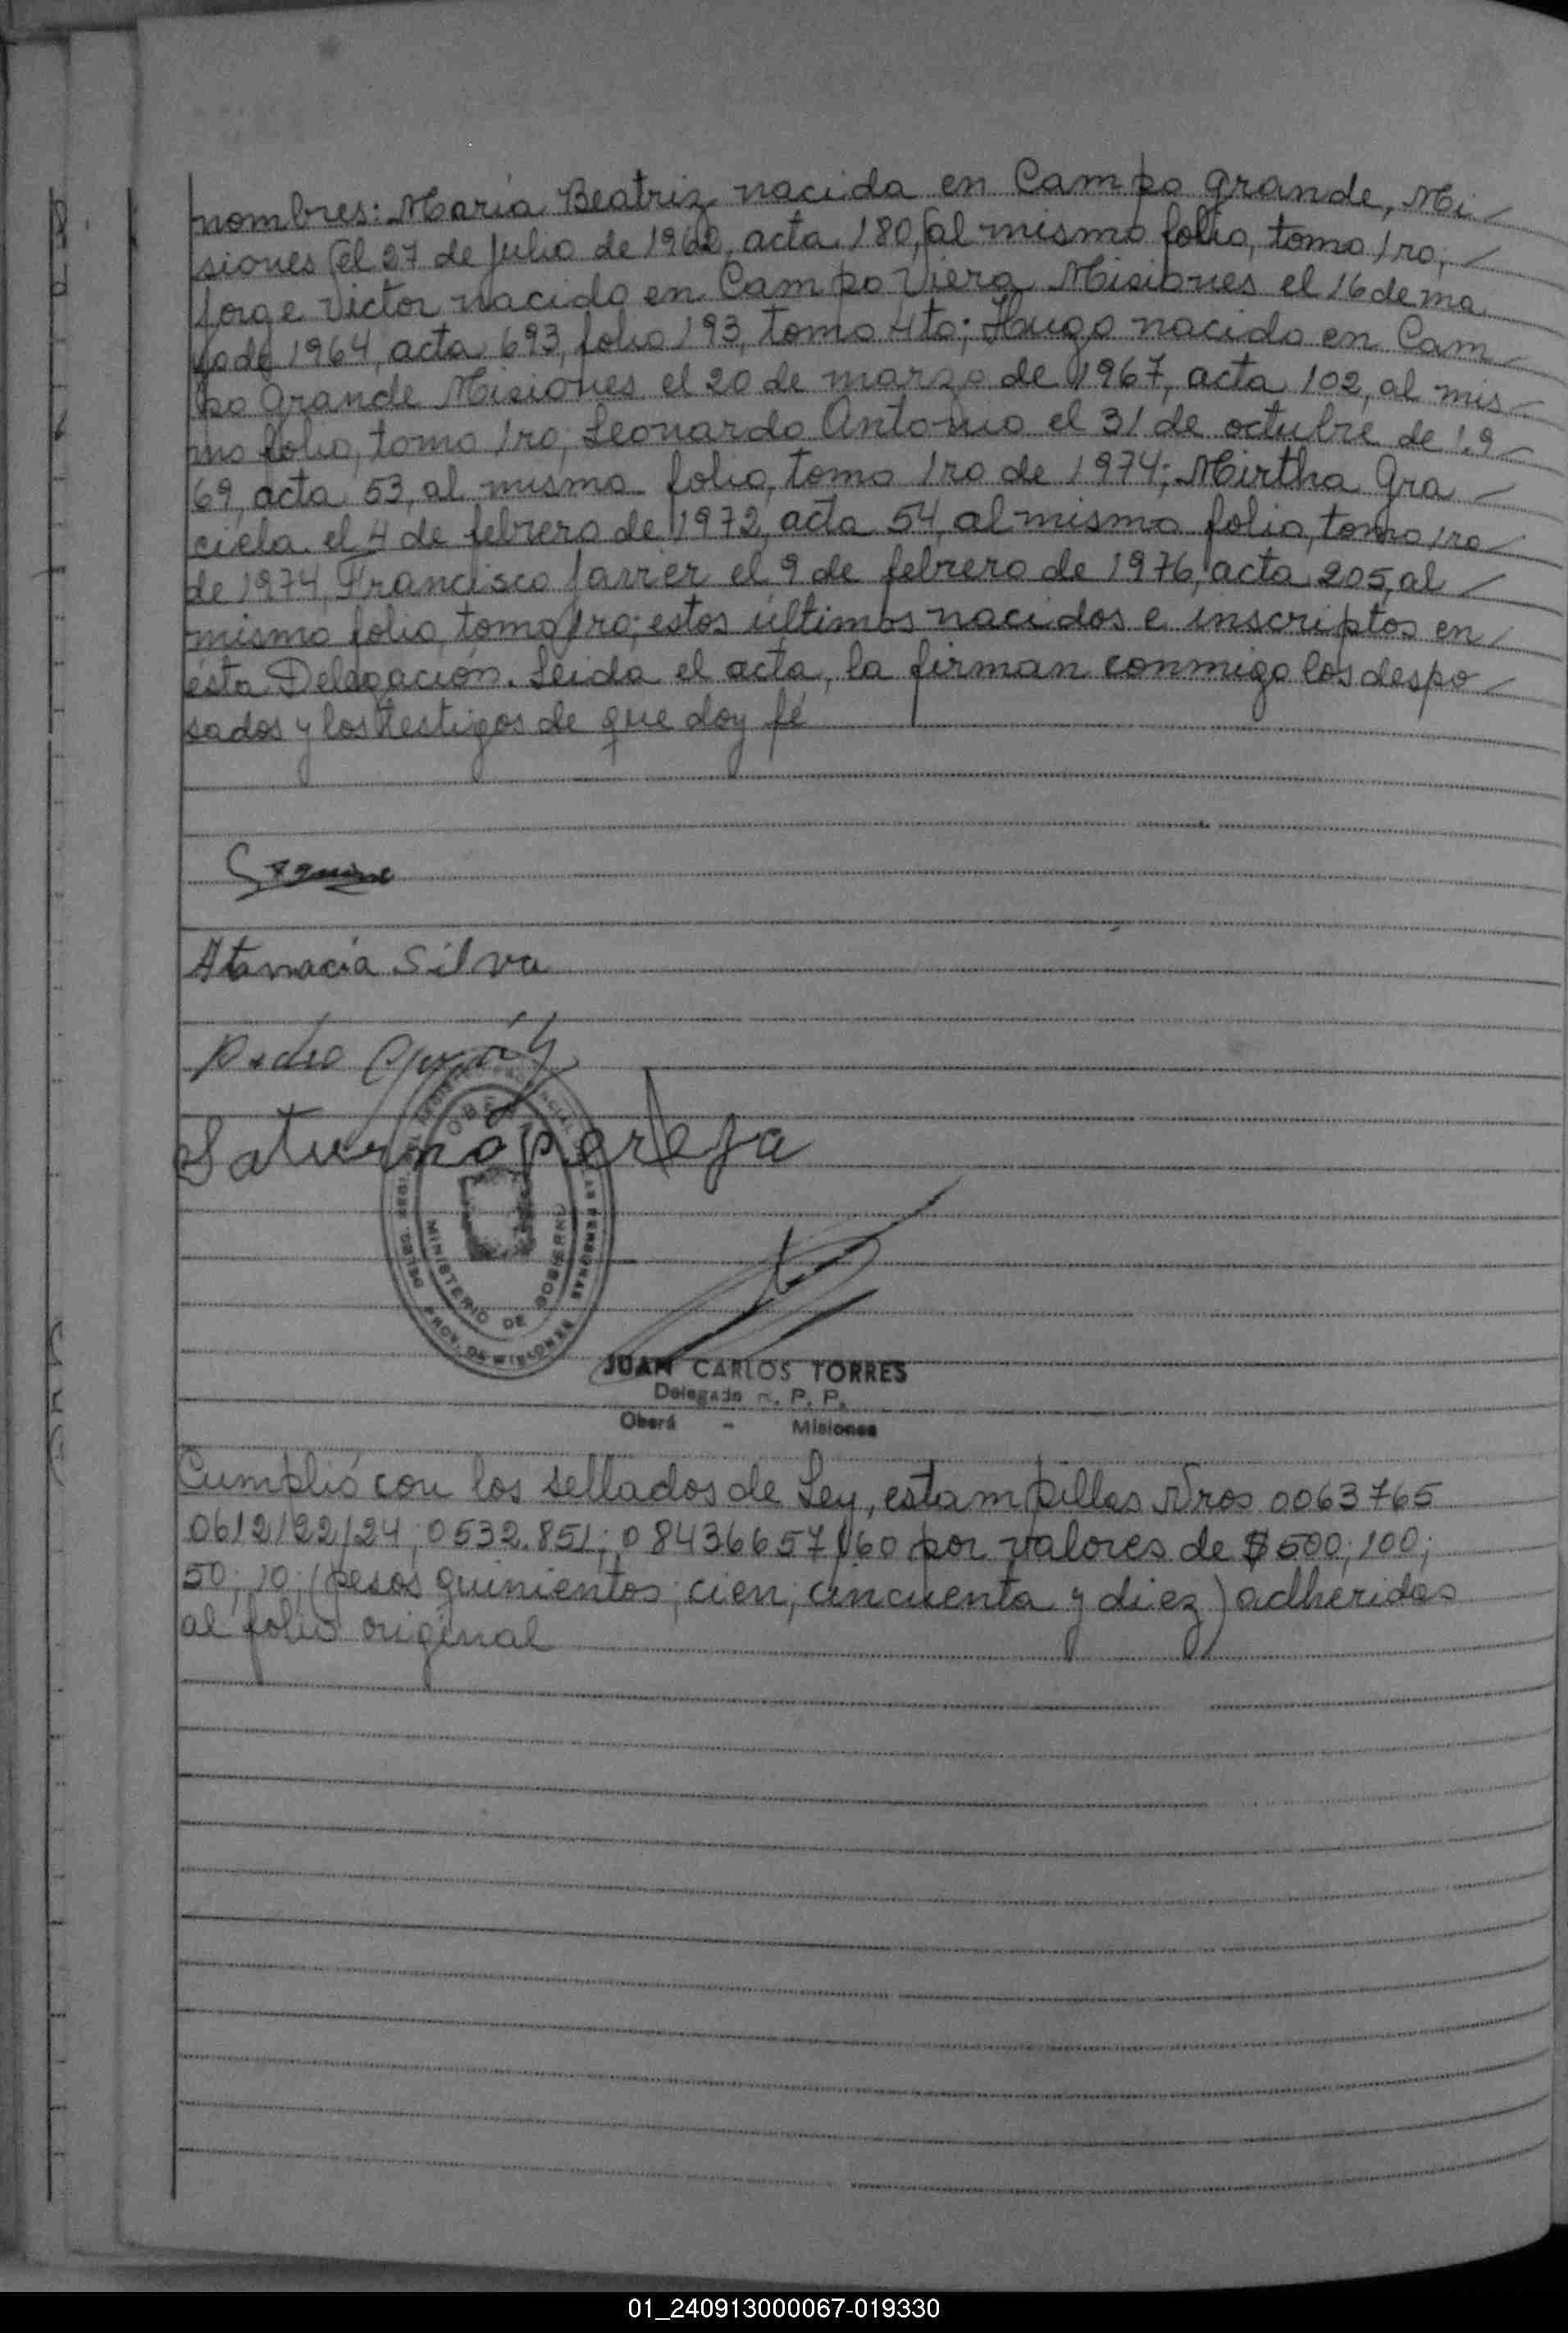 nombres: María Beatriz nacida en Campo Grande, Mi
siones el 27 de Julio de 1962, acta 180, al mismo folio, tomo 1ro,
Jorge Victor nacido en Campo Viera Misiones el 16 de ma
yo de 1964, acta 693, folio 193, tomo 4to; Hugo nacido en Cam
po Grande Misiones el 20 de marzo de 1967, acta 102, al mis
mo folio, tomo 1ro; Leonardo Antonio el 31 de octubre de 19
69, acta 53, al mismo folio, tomo 1ro de 1974; Mirtha Gra
ciela el 4 de febrero de 1972, acta 54, al mismo folio, tomo 1ro
de 1974, Francisco Javier el 9 de febrero de 1976, acta 205, al
mismo folio, tomo 1ro; estos últimos nacidos e inscriptos en
ésta Delegación. Leida el acta, la firman conmigo los despo
sados y los testigos de que doy fé
Atanacia Silva
Pedro
Saturno pereja
MINISTERIO DE GOBIERNO
PROV. DE MISIONES
JUAN CARLOS TORRES
Delegado R. P. P.
Oberá - Misiones
Cumplió con los sellados de Ley, estampillas Nros 0063765
0612122/24; 0532.851; 08436657/60 por valores de $ 500; 100;
50; 10; (pesos quinientos; cien; cincuenta y diez) adheridas
al folio original
01_240913000067-019330